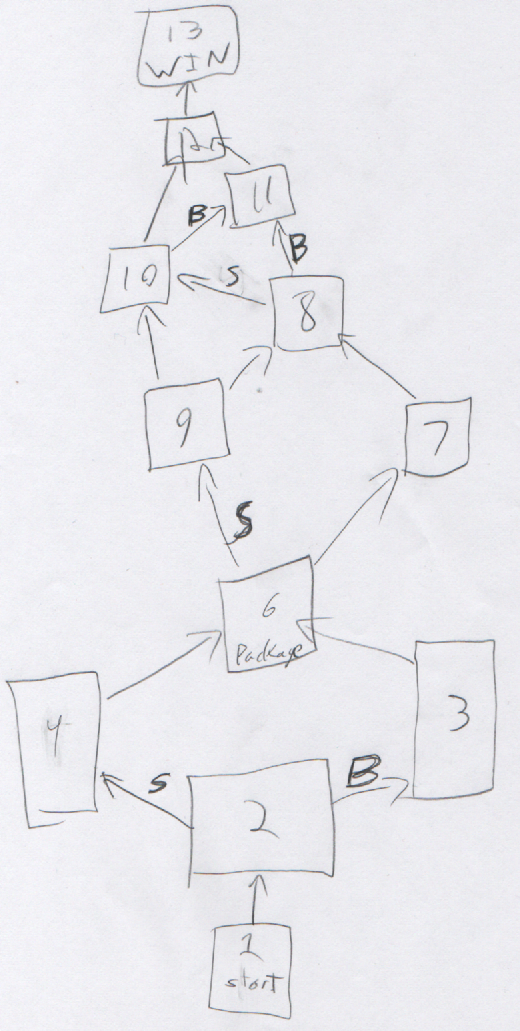 13
WIN
12
11
B
B
10
S
8
9
7
S
6
Package
4
3
S
B
2
1
start